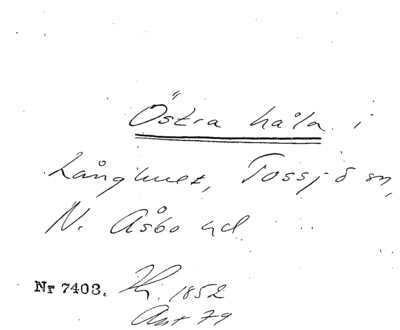 Östra håla i
Långhult, Tossjö sn,
N. Åsbo hd.
Nr 7403. Hj. 1852
Ant 79